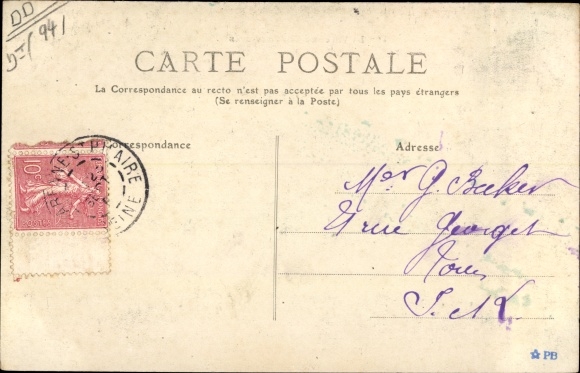 DD
941
CARTE POSTALE
La Correspondance au recto n'est pas acceptée par tous les pays étrangers
(Se renseigner à la Poste)
Correspondance
Adresse
G. Becker
rue Georget
Tours
I. &
PB